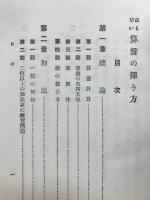 最も早い 算盤の弾き方
目次
第一章 総論
第一節 算盤計算
第二節 算盤の名称及種
第三節 布数法
第四節 指の使ひ方
第二章 加法
第一節 一位の加法
第二節 二位以上の加法並に練習問題
目次
一